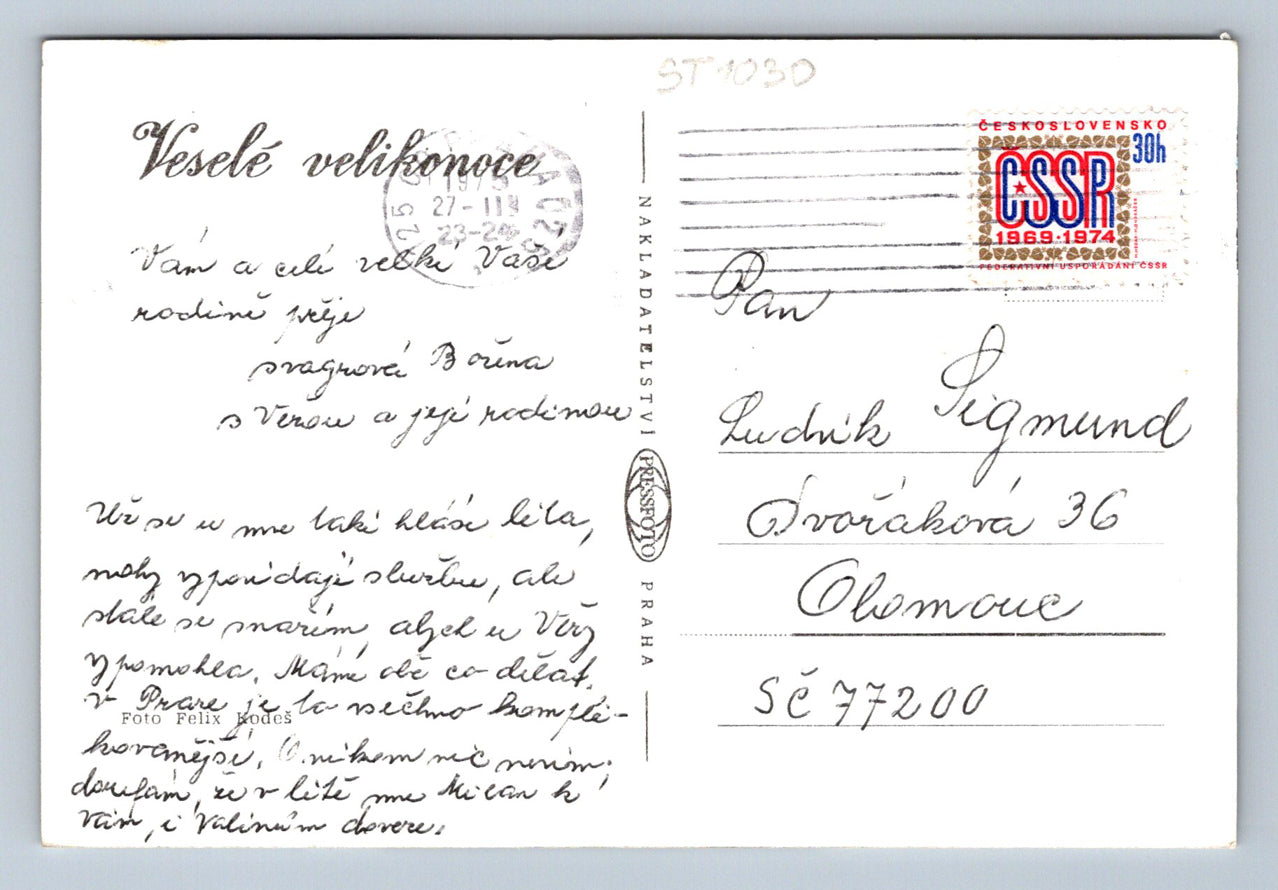 ST 1030
Veselé velikonoce
1975
27-III
23-24
Vám a celé velké Vaší
rodině přeje
svagrová Božena
s Verou a její rodinou
Už se u mne také hlásí léta,
nohy vypovídají službu, ale
stále se snažím, abych u Věry
vypomohla. Máme obě co dělat,
v Praze je to všechno kompli-
kovanější. O nikom nic nevím,
doufám, že v létě mne Milan k
Vám, i Valinům doveze.
Foto Felix Kodeš
NAKLADATELSTVÍ PRESSFOTO PRAHA
ČESKOSLOVENSKO
30h
ČSSR
1969·1974
FEDERATIVNÍ USPOŘÁDÁNÍ ČSSR
Pan
Ludvík Sigmund
Dvořáková 36
Olomouc
SČ 77200